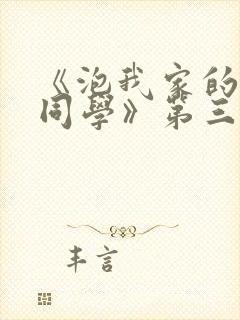 《泡我家的
同學》第三
丰言